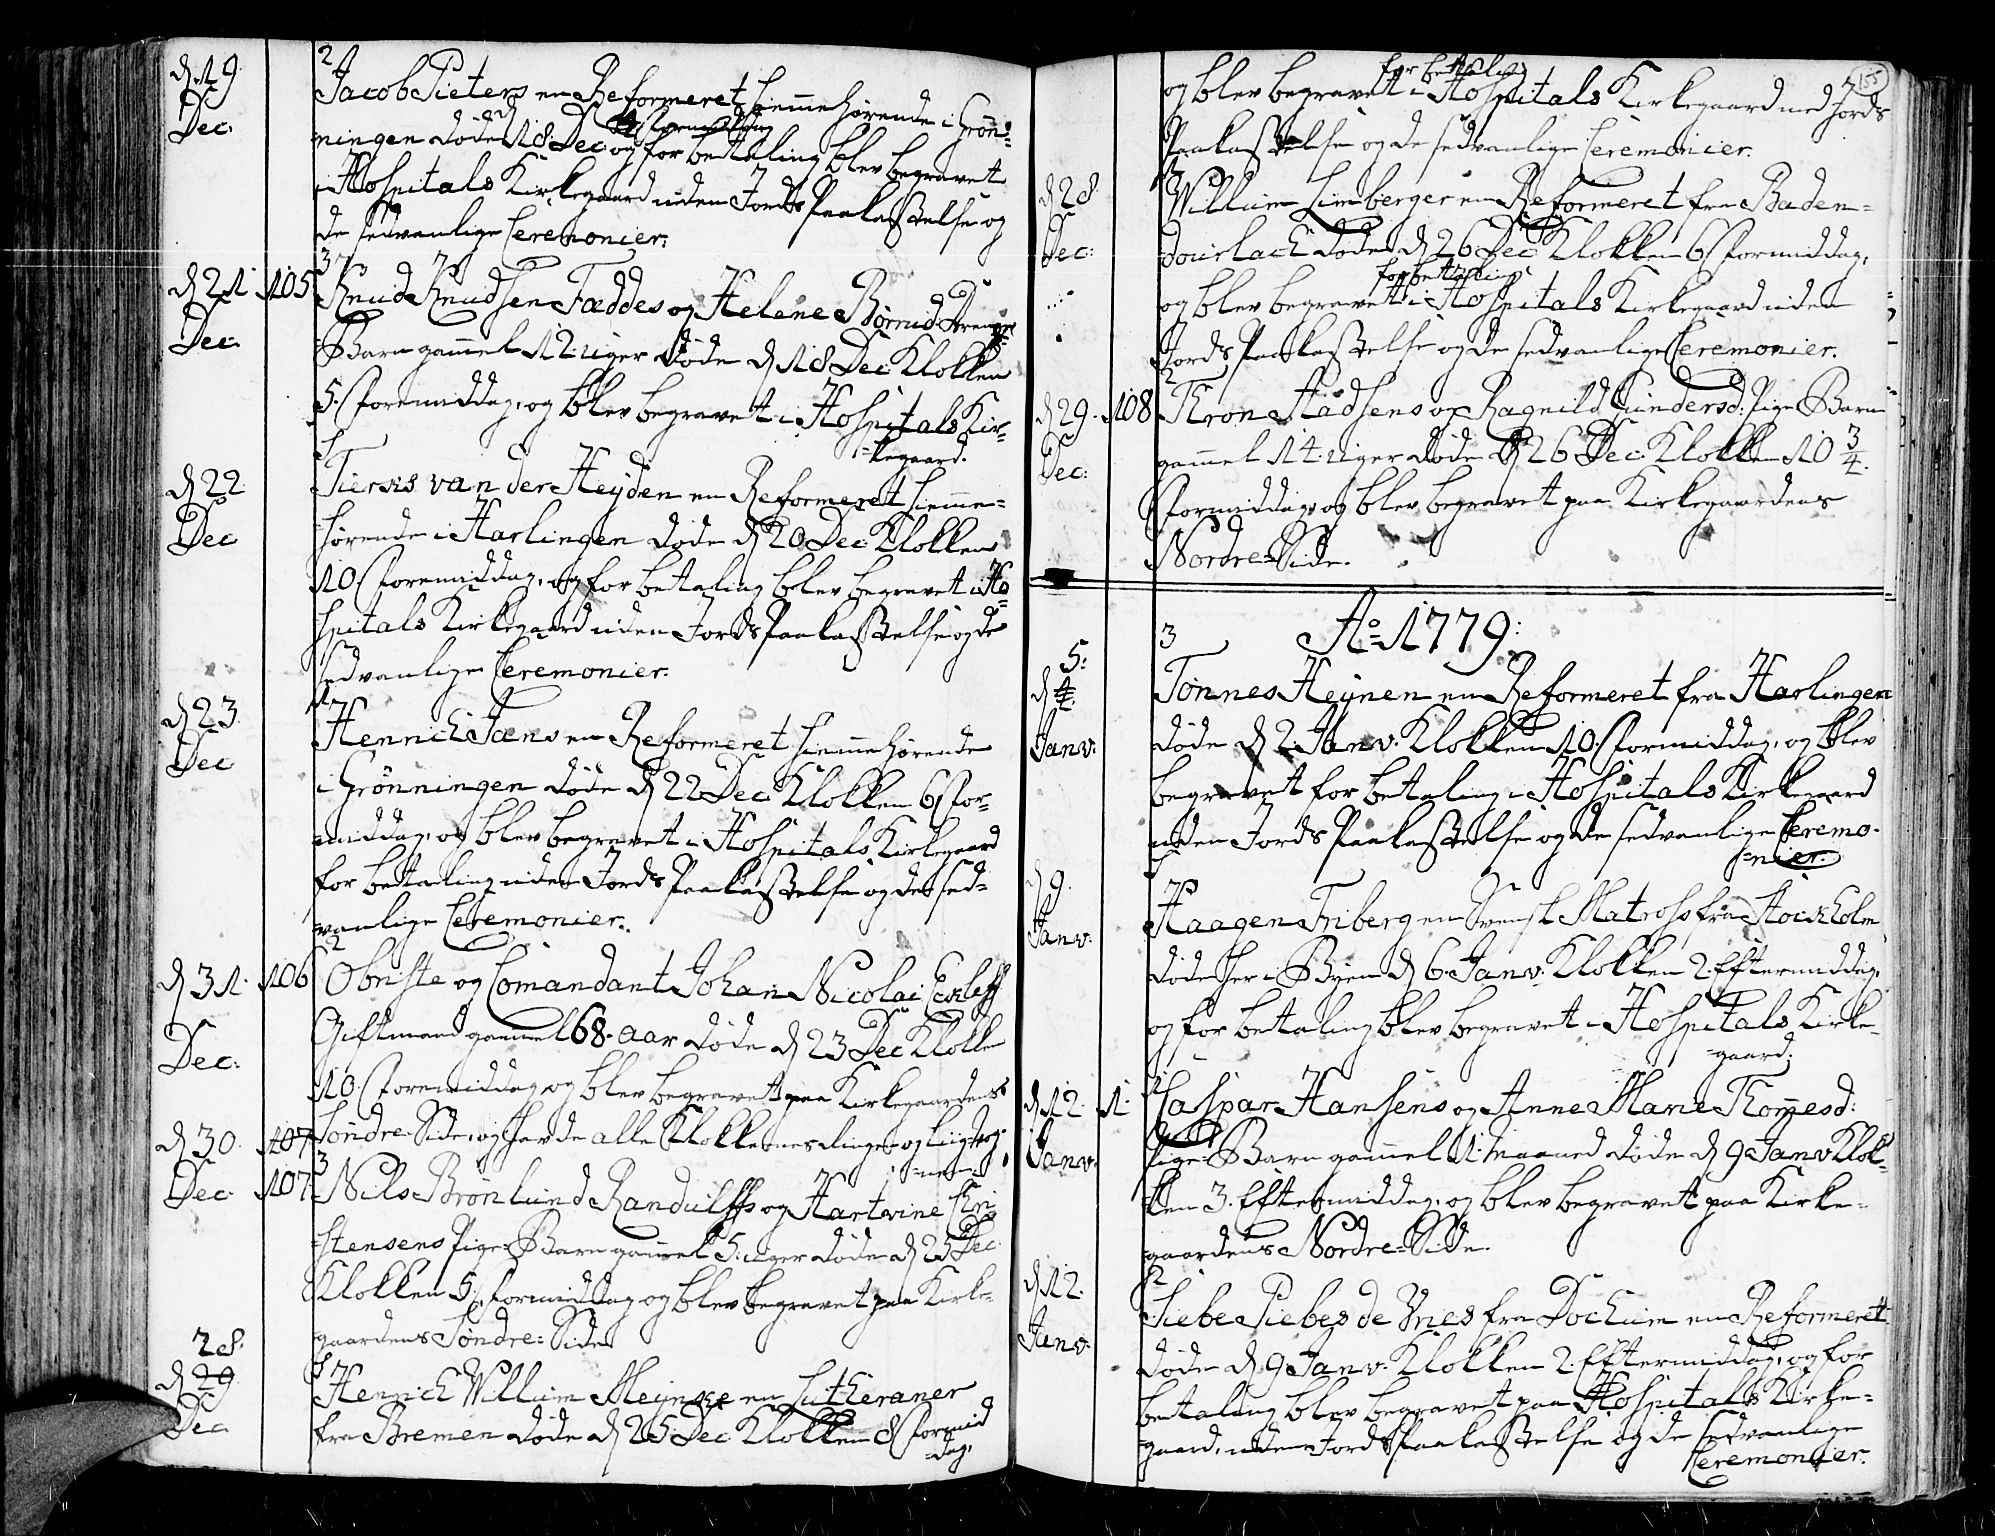 d. 19
Dec:
2
Jacob Pieters en Reformeret hiemmehørende i Grøn=
ningen døde d 18 Dec: og for betaling blev begravet
i Hospitals Kirkegaard uden Jords Paakastelse og
de sedvanlige Ceremonier.
d 21. 105
Dec:
3
Knud Knudsen Fæddes og Helene Børnisd: Drenge
Barn gammel 12. uger døde d 18 Dec: Klokken
5. Formiddag, og blev begravet i Hospitals Kir=
=kegaard.
d 22
Dec
Tiersis van der Heyden en Reformeret hiemme=
hørende i Harlingen døde d 20 Dec: Klokken
10. Formiddag, og for betaling blev begravet i Ho=
spitals Kirkegaard uden Jords Paakastelse og de
sedvanlige Ceremonier.
d 23.
Dec
Henrich Jans en Reformeret hiemmehørende
i Grønningen døde d 22 Dec: Klokken 6 For=
middag, og blev begravet i Hospitals Kirkegaard
for betaling uden Jords Paakastelse og de sed=
vanlige Ceremonier.
d 31. 106
Dec:
2
Obriste og Comandant Johan Nicolai
Giftmand gammel 68. aar døde d 23 Dec Klokken
10. Formiddag, og blev begravet paa Kirkegaardens
Søndre Side, og havde alle Klokkernes
d 30. 107
Dec. 107
3
Nils Brønlund Randulffs og Hartvine Chri
stensens Pige=Barn gammel 5. uger døde d 25 Dec.
Klokken 5. Formiddag og blev begravet paa Kirke=
gaardens Søndre=Side
28.
d 29
Dec
Henrich Willum Meynske en Lutheraner
fra Bremen døde d 25 Dec Klokken 8 Formid
=dag,
155
for betaling
og blev begravet i Hospitals Kirkegaard med Jords
Paakastelse og de sedvanlige Ceremonier.
d 28
Dec:
Willum Limberger en Reformeret fra Baden=
dourlach døde d 26 Dec Klokken 6 Formiddag,
for betaling
og blev begravet i Hospitals Kirkegaard uden
Jords Paakastelse og de sedvanlige Ceremonier.
d 29. 108
Dec:
2
Thron Madsens og Ragnild Gundersd: Pige Barn
gammel 14. uger døde d 26 Dec. Klokken 10 3/4.
Formiddag, og blev begravet paa Kirkegaardens
Nordre=Side.
Ao 1779:
5:
d 4.
Janv:
3
Tønnes Heynen en Reformeret fra Harlingen
døde d 2 Janv. Klokken 10. Formiddag, og blev
begravet for betaling i Hospitals Kirkegaard
uden Jords Paakastelse og de sedvanlige Ceremo=
=nier.
d 9.
Janv:
Haagen Friberg en Svensk Matross fra Stockholm
døde her i Byen d 6. Janv: Klokken 2. Eftermiddag,
og for betaling blev begravet i Hospitals Kirke=
=gaard.
d 12. 1.
Janv:
Caspar Hansens og Anne Marie Thommesd:
Pige=Barn gammel 1. Maaned døde d 9 Janv Klok=
ken 3. Eftermiddag, og blev begravet paa Kirke=
gaardens Nordre=Side.
d 12.
Janv:
2
Siebe Piebes de Vries fra Dochum en Reformeret
døde d. 9 Janv. Klokken 2. Eftermiddag, og for
betaling blev begravet paa Hospitals Kirke=
gaard, uden Jords Paakastelse og de sedvanlige
Ceremonier.